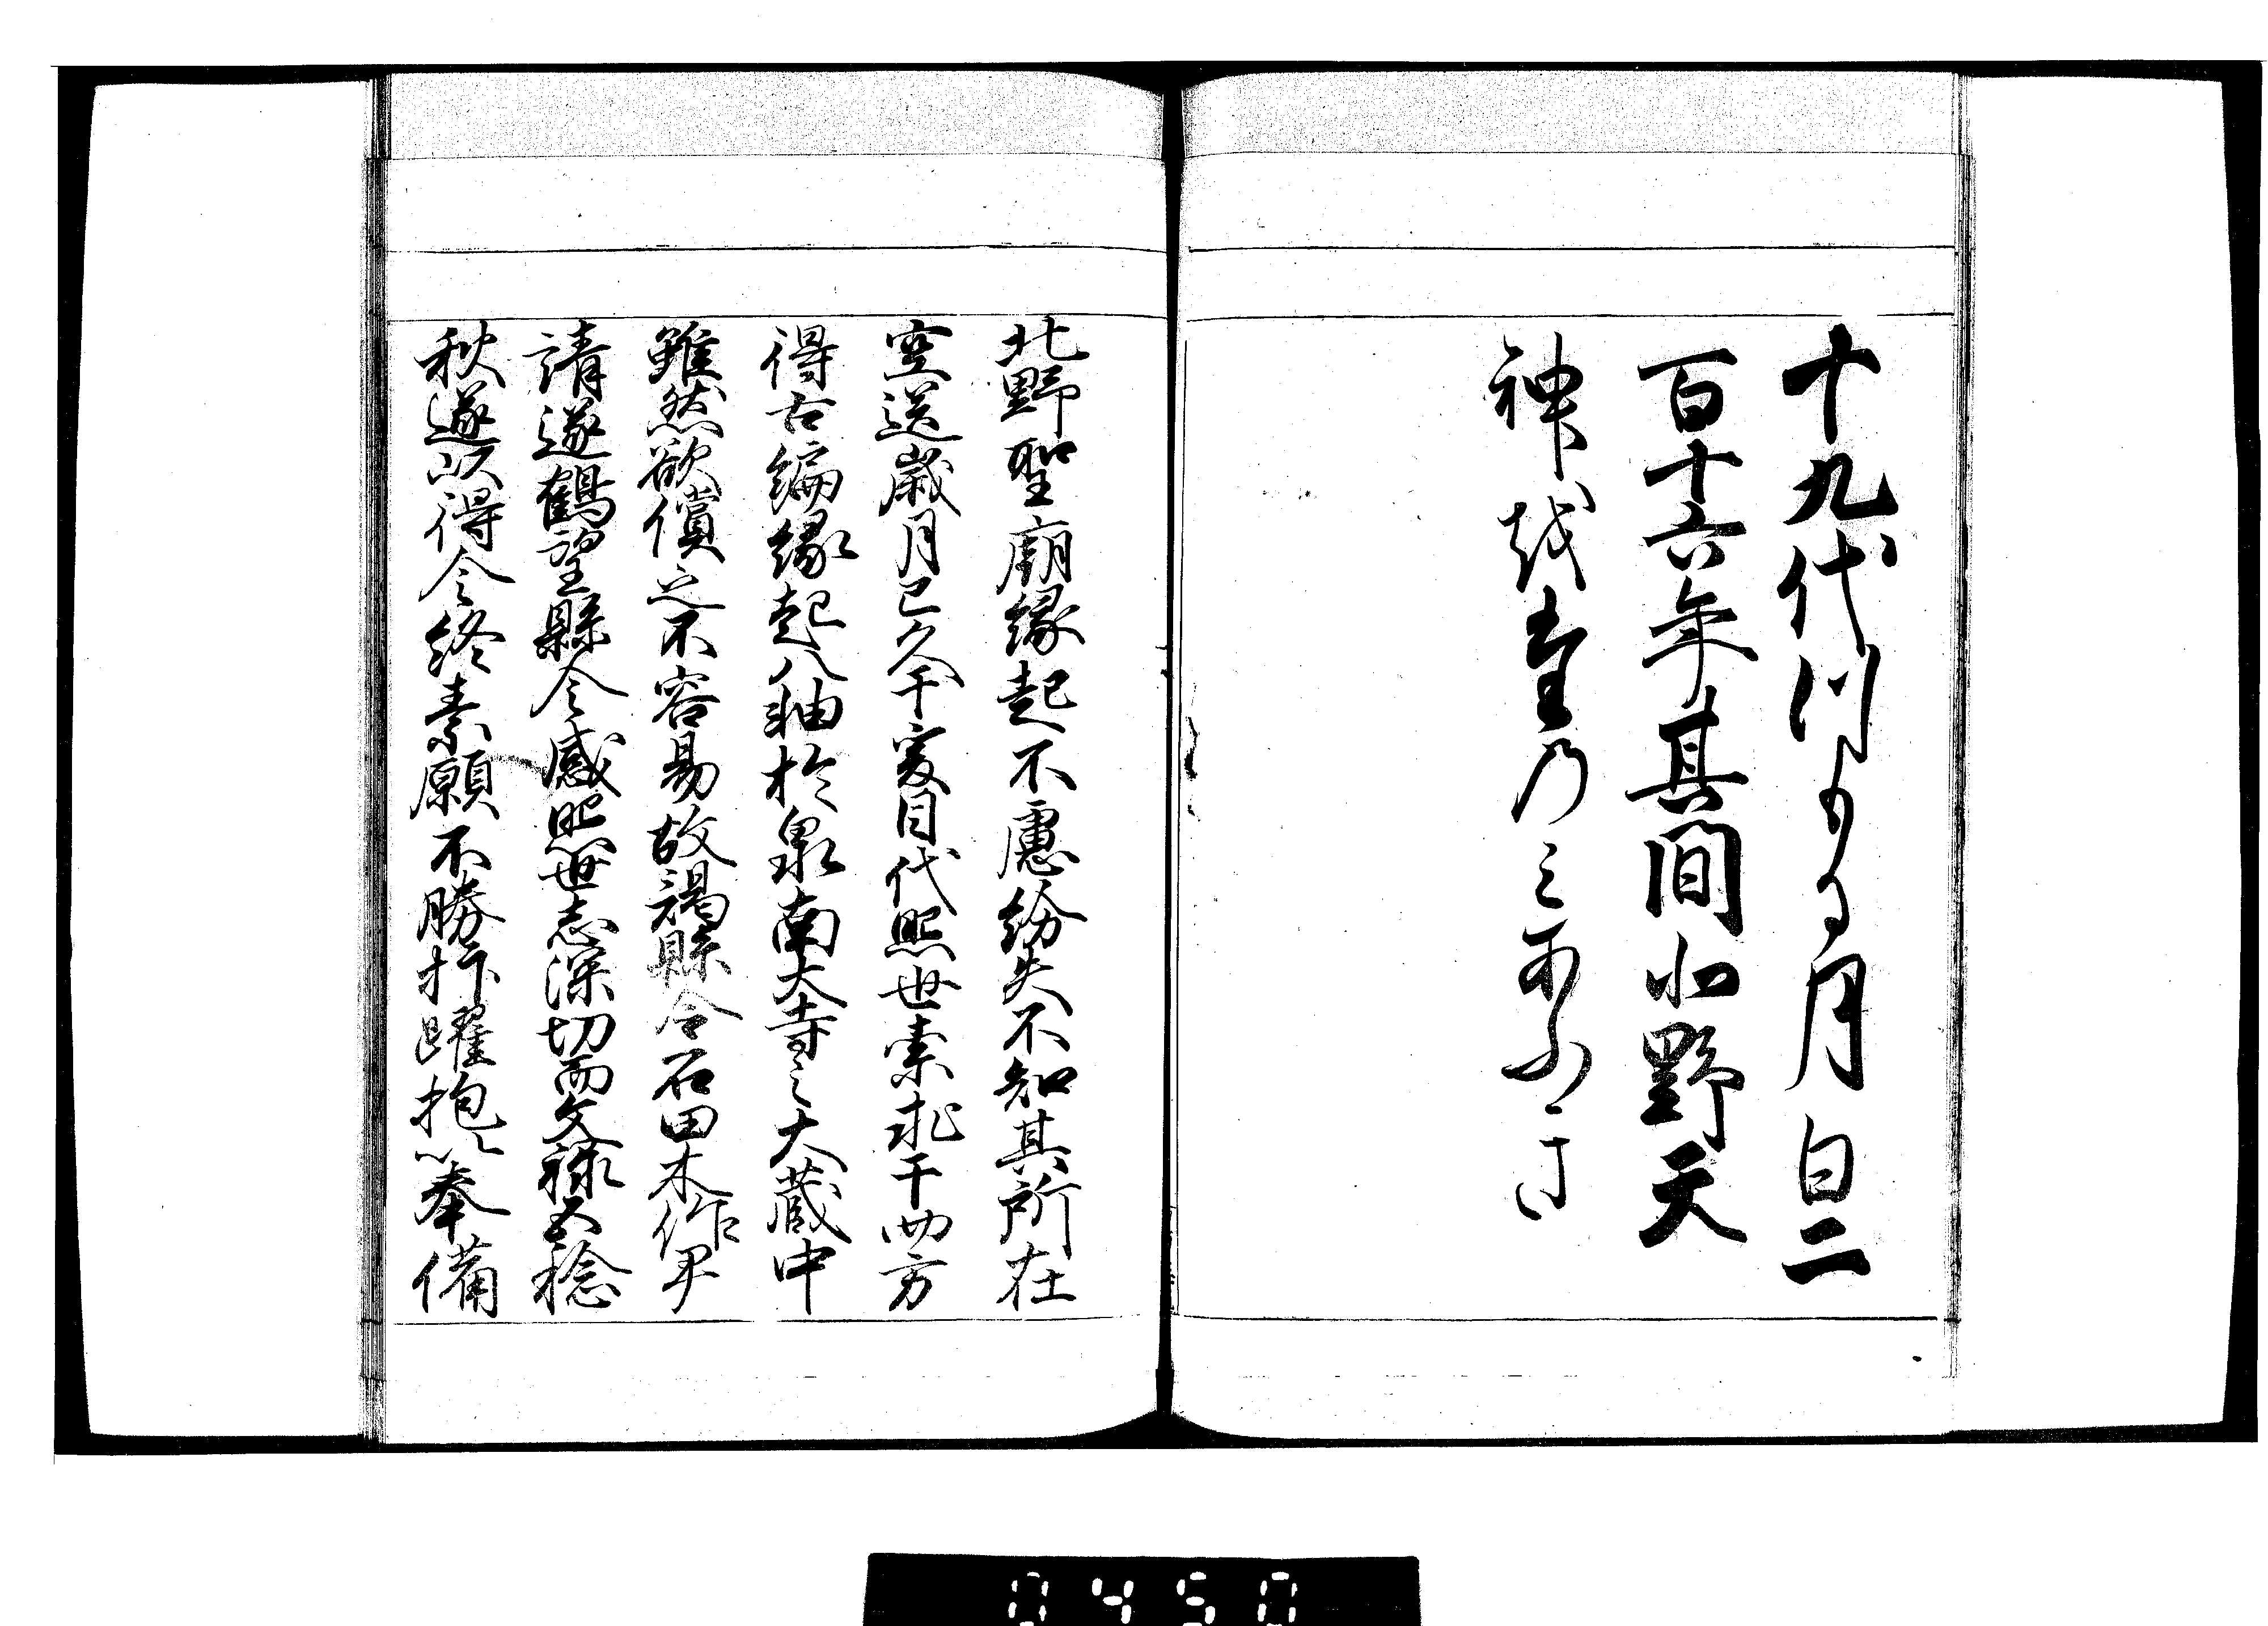 十九代つもる月日二
百十六年其間北野天
神越奉乃
北野聖廟縁起不慮紛失不知其所在
空送歳月已久于爰目代照世索求于四方
得古編縁起八軸於泉南大寺之大蔵中
雖然欲償之不容易故謁縣令石田木作尹
請遂鶴望縣令感照世志深切而文禄五稔
秋遂以得令終素願不勝抃躍抱以奉備
0450